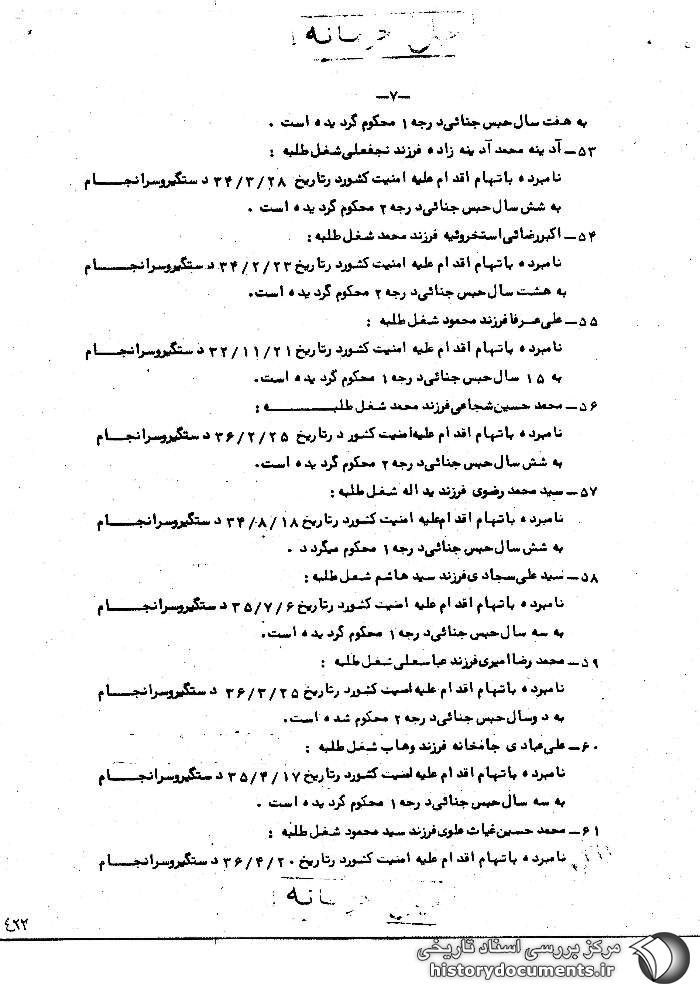 خیلی محرمانه
—۷—
به هفت سال حبس جنائی درجه ۱ محکوم گردیده است .
۵۳— آدینه محمد آدینه زاده فرزند نجفعلی شغل طلبه :
نامبرده باتهام اقدام علیه امنیت کشور در تاریخ ۳۴/۳/۲۸ دستگیر و سرانجام
به شش سال حبس جنائی درجه ۲ محکوم گردیده است .
۵۴— اکبر رضائی استخروئیه فرزند محمد شغل طلبه :
نامبرده باتهام اقدام علیه امنیت کشور در تاریخ ۳۴/۲/۲۳ دستگیر و سرانجام
به هشت سال حبس جنائی درجه ۲ محکوم گردیده است.
۵۵— علی عرفا فرزند محمود شغل طلبه :
نامبرده باتهام اقدام علیه امنیت کشور در تاریخ ۳۲/۱۱/۲۱ دستگیر و سرانجام
به ۱۵ سال حبس جنائی درجه ۱ محکوم گردیده است.
۵۶— محمد حسین شجاعی فرزند محمد شغل طلبه :
نامبرده باتهام اقدام علیه امنیت کشور در تاریخ ۳۶/۲/۲۵ دستگیر و سرانجام
به شش سال حبس جنائی درجه ۲ محکوم گردیده است.
۵۷— سید محمد رضوی فرزند ید اله شغل طلبه :
نامبرده باتهام اقدام علیه امنیت کشور در تاریخ ۳۴/۸/۱۸ دستگیر و سرانجام
به شش سال حبس جنائی درجه ۱ محکوم میگردد .
۵۸— سید علی سجادی فرزند سید هاشم شغل طلبه :
نامبرده باتهام اقدام علیه امنیت کشور در تاریخ ۳۵/۷/۶ دستگیر و سرانجام
به سه سال حبس جنائی درجه ۱ محکوم گردیده است.
۵۹— محمد رضا امیری فرزند عباسعلی شغل طلبه :
نامبرده باتهام اقدام علیه امنیت کشور در تاریخ ۳۶/۳/۲۵ دستگیر و سرانجام
به دو سال حبس جنائی درجه ۲ محکوم شده است.
۶۰— علی عبادی جامخانه فرزند وهاب شغل طلبه :
نامبرده باتهام اقدام علیه امنیت کشور در تاریخ ۳۵/۴/۱۷ دستگیر و سرانجام
به سه سال حبس جنائی درجه ۱ محکوم گردیده است .
۶۱— محمد حسین غیاث علوی فرزند سید محمود شغل طلبه :
نامبرده باتهام اقدام علیه امنیت کشور در تاریخ ۳۶/۴/۲۰ دستگیر و سرانجام
۴۲۲
مرکز بررسی اسناد تاریخی
historydocuments.ir